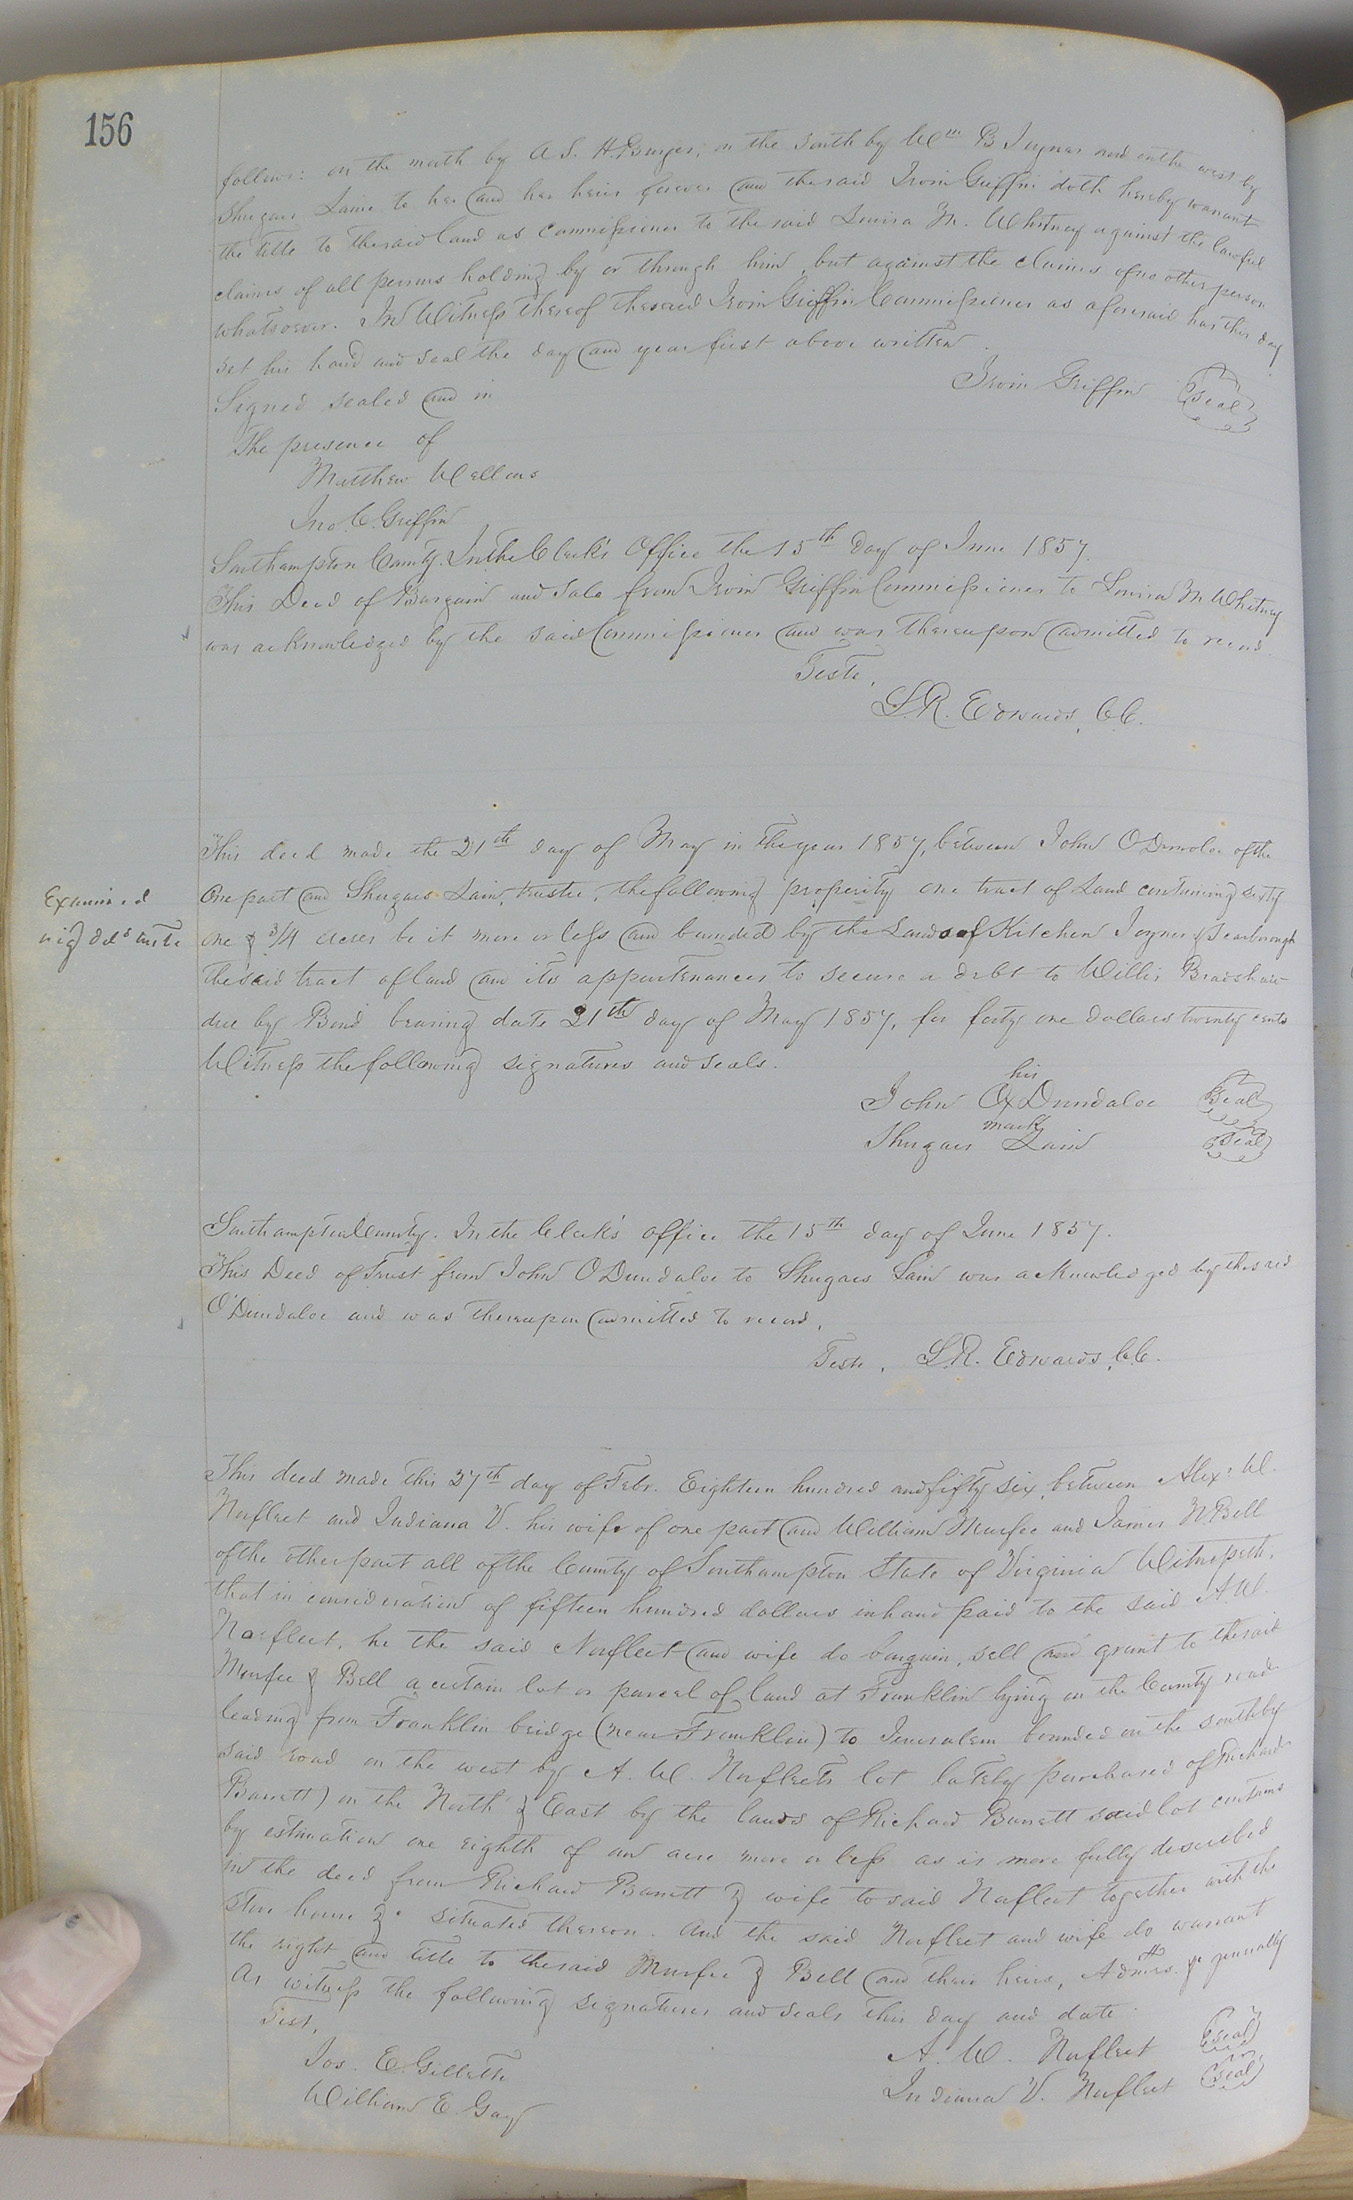 156
follows: on the north by A. S. H. Burges, on the South by Wm B Joyner and on the west by
Shugars Lain to her and her heirs forever and the said Irvin Griffin doth hereby warrant
the title to the said land as Commissioner to the said Louisa M. Whitney against the lawful
claims of all persons holding by or through him, but against the claims of no other person
whatsoever. In Witness thereof the said Irvin Griffin Commissioner as aforesaid has this day
set his hand and seal the day and year first above written.
Irvin Griffin (Seal)
Signed sealed and in
the presence of
Matthew Wellons
Jno. C. Griffin
Southampton County. In the Clerk's Office the 15th day of June 1857.
This Deed of Bargain and Sale from Irvin Griffin Commissioner to Louisa M Whitney
was acknowledged by the said Commissioner and was thereupon admitted to record.
Teste,
L. R. Edwards, C.C.
This deed made the 21th day of May in the year 1857, between John O'Dundaloe of the
Examined
One part and Shugars Lain, trustee, the following property one tract of Land containing sixty
one & 3/4 acres be it more or less and bounded by the Lands of Kitchen Joyner & Scarborough
the said tract of land and its appurtenances to secure a debt to Willis Bradshaw
due by Bond bearing date 21th day of May 1857, for forty one dollars twenty cents
Witness the following signatures and seals.
his
John O x Dundaloe (Seal)
mark
Shugars Lain (Seal)
Southampton County. In the Clerk's office the 15th day of June 1857.
This Deed of Trust from John O'Dundaloe to Shugars Lain was acknowledged by the said
O'Dundaloe and was thereupon admitted to record.
Teste, L. R. Edwards, C.C.
This deed made this 27th day of Febr. Eighteen hundred and fifty six, between Alexr W.
Norfleet and Indiana V. his wife of one part and William Murfee and James N. Bell
of the other part all of the County of Southampton State of Virginia Witnesseth,
that in consideration of fifteen hundred dollars in hand paid to the said A. W.
Norfleet, he the said Norfleet and wife do bargain, sell and grant to the said
Murfee & Bell a certain lot or parcel of land at Franklin lying on the County road
leading from Franklin bridge (near Franklin) to Jerusalem bounded on the south by
said road on the west by A. W. Norfleets lot lately purchased of Richard
Barrett) on the North & East by the lands of Richard Barrett said lot contains
by estimation one eighth of an acre more or less as is more fully described
in the deed from Richard Barrett & wife to said Norfleet together with the
store house &c situated thereon. And the said Norfleet and wife do warrant
the right and title to the said Murfee & Bell and their heirs, Admrs. &c generally
As witness the following signatures and seals this day and date.
Test,
A. W. Norfleet (seal)
Jos. E. Gillette
Indiana V. Norfleet (seal)
William E. Gay